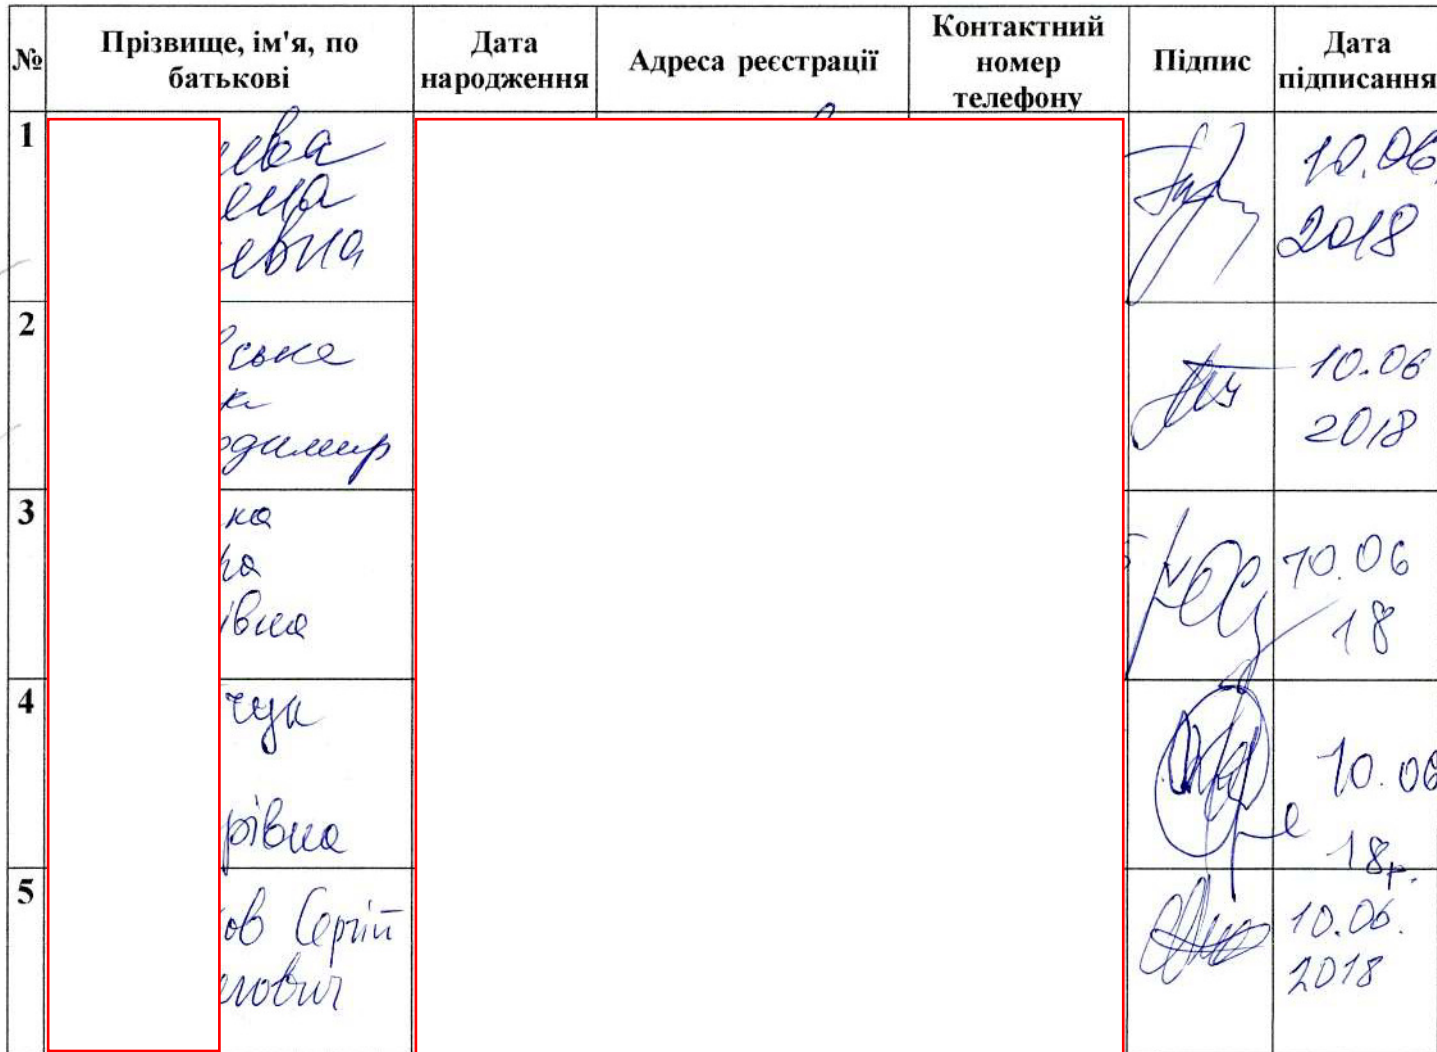 № Прізвище, ім'я, по батькові Дата народження Адреса реєстрації Контактний номер телефону Підпис Дата підписання
1
ева
ена
евна
10.06.
2018
2
ська
ка
одимир
10.06
2018
3
на
ра
івна
10.06
18
4
чук
рівна
10.06
18р.
5
ов Сергій
ович
10.06.
2018